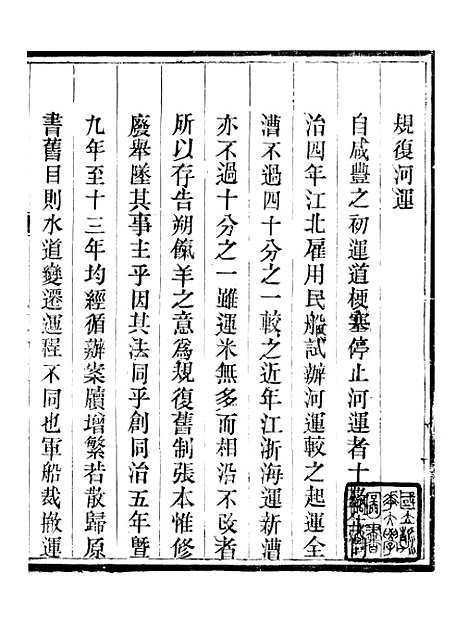 規復河運
自咸豐之初運道梗塞停止河運者十
治四年江北雇用民船試辦河運較之起運全
漕不過四十分之一較之近年江浙海運新漕
亦不過十分之一雖運米無多而相沿不改者
所以存告朔餼羊之意為規復舊制張本惟修
廢舉墜其事主乎因其法同乎創同治五年曁
九年至十三年均經循辦案牘增繁若散歸原
書舊目則水道變遷運程不同也軍船裁撤運